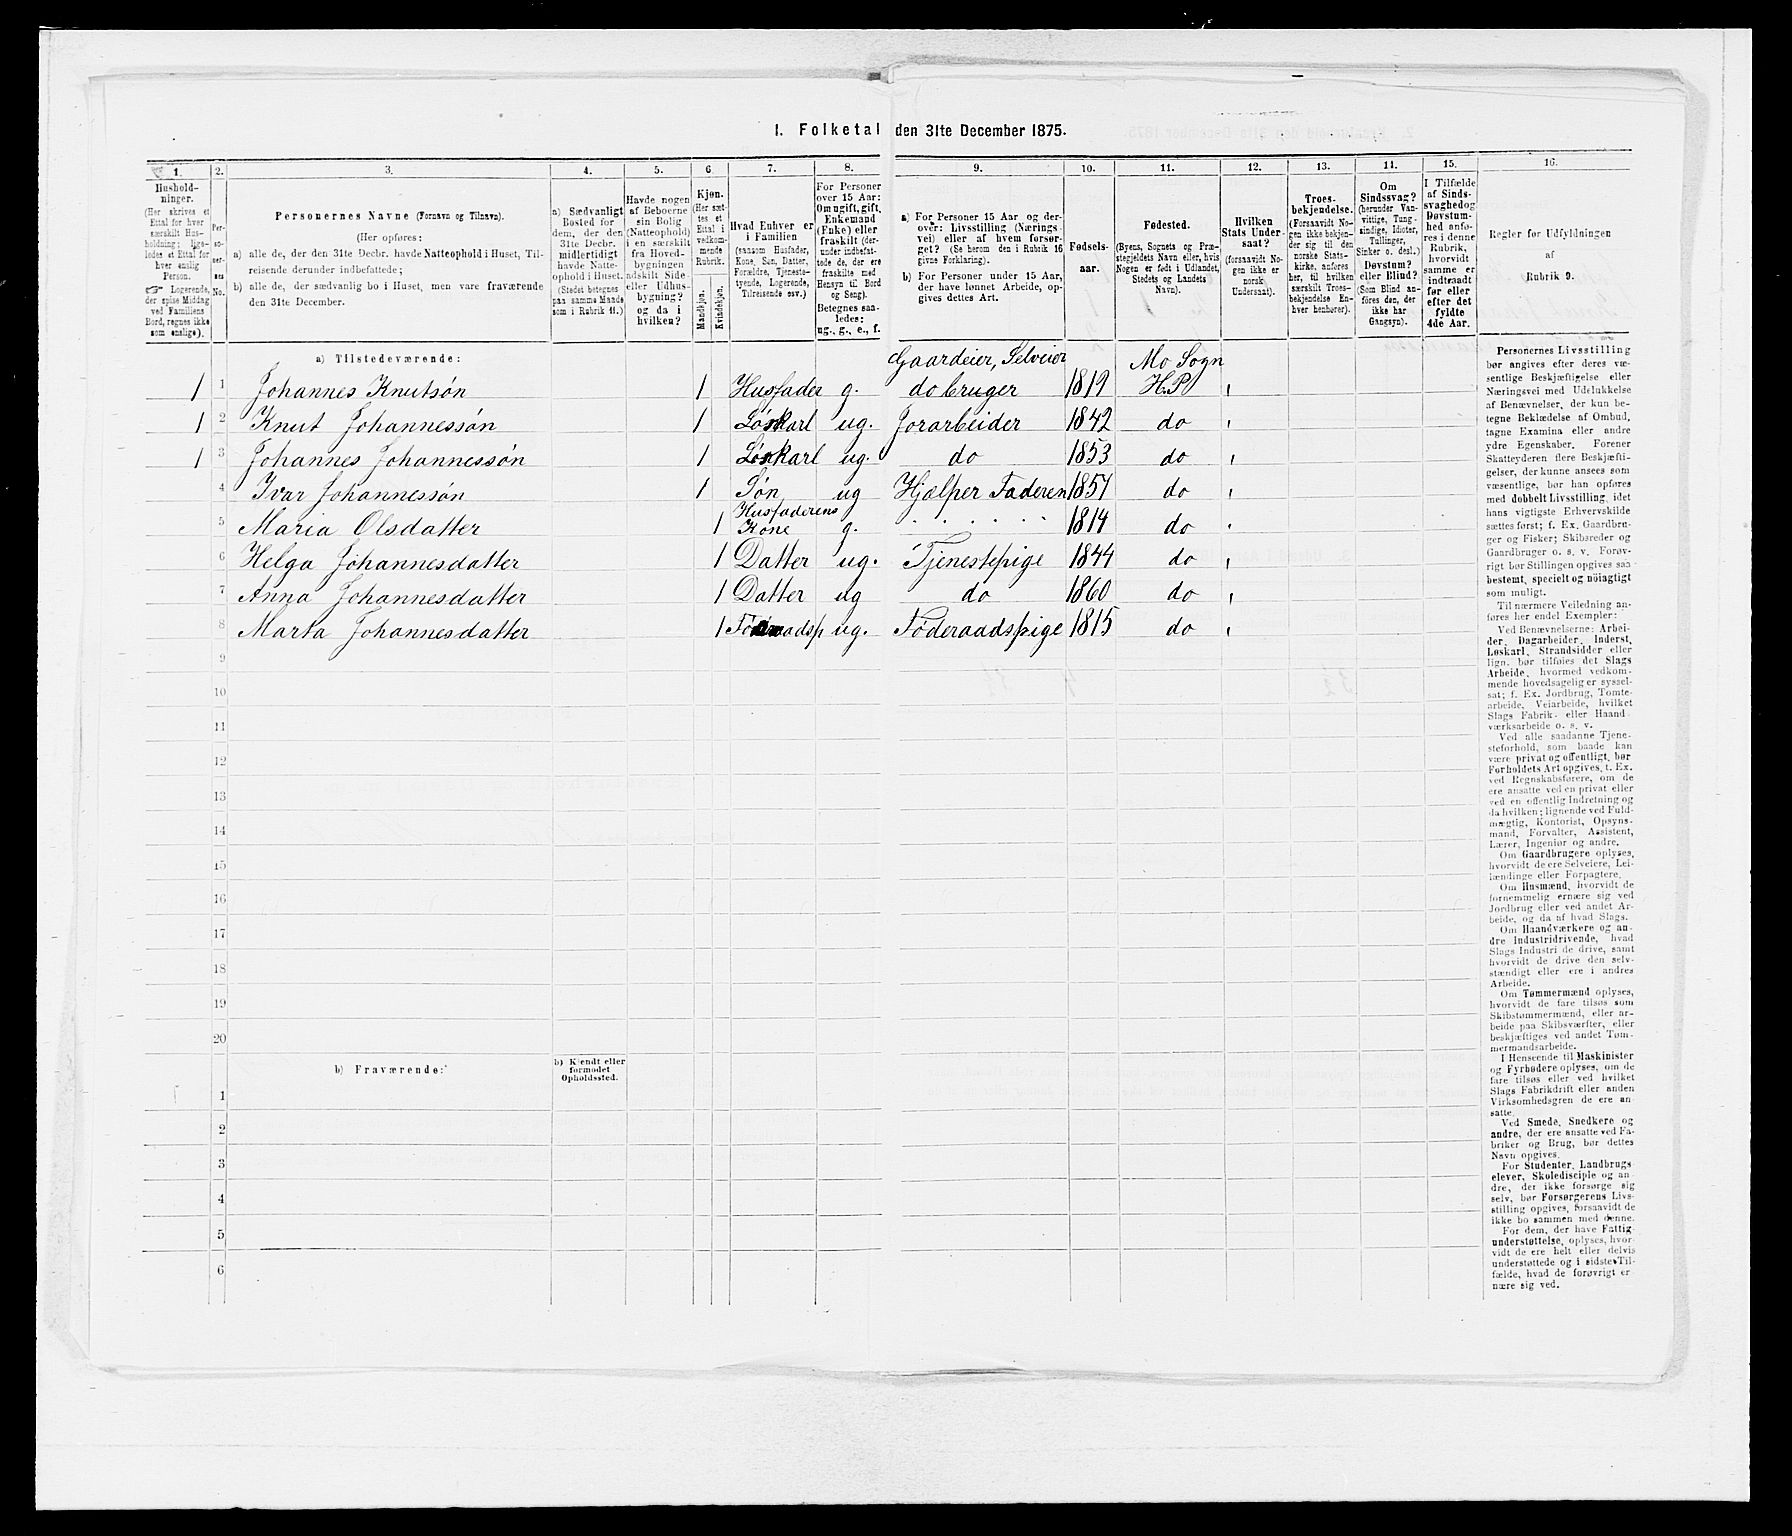 1. Folketal den 31te December 1875.
1. 2. 3. 4. 5. 6. 7. 8. 9. 10. 11. 12. 13. 14. 15. 16.
Hushold-
ninger.
(Her skrives et
Ettal for hver
særskilt Hus-
holdning; lige-
ledes et Ettal for
hver enslig
Person.
☞ Logerende,
der spise Middag
ved Familiens
Bord, regnes ikke
som enslige).
Personernes Navne (Fornavn og Tilnavn).
(Her opføres:
a) alle de, der den 31te Decbr. havde Natteophold i Huset, Til-
reisende derunder indbefattede;
b) alle de, der sædvanlig bo i Huset, men vare fraværende
den 31te December.
a) Sædvanligt
Bosted for
dem, der den
31te Decbr.
midlertidigt
havde Natte-
ophold i Huset.
(Stedet betegnes
paa samme Maade
som i Rubrik 11.)
Havde nogen
af Beboerne
sin Bolig
(Natteophold)
i en særskilt
fra Hoved-
bygningen
adskilt Side-
eller Udhus-
bygning?
og da i
hvilken?
Kjøn.
(Her sæt-
tes et
Ettal i
vedkom-
mende
Rubrik.
Mandkjøn.
Kvindekjøn.
Hvad Enhver er
i Familien
(saasom Husfader,
Kone, Søn, Datter,
Forældre, Tjeneste-
tyende, Logerende,
Tilreisende osv.)
For Personer
over 15 Aar:
Om ugift, gift,
Enkemand
(Enke) eller
fraskilt (der-
under indbefat-
tede de, der ere
fraskilte med
Hensyn til Bord
og Seng).
Betegnes saa-
ledes:
ug., g., e., f.
a) For Personer 15 Aar og der-
over: Livsstilling (Nærings-
vei) eller af hvem forsør-
get? (Se herom den i Rubrik 16
givne Forklaring).
b) For Personer under 15 Aar,
der have lønnet Arbeide, op-
gives dettes Art.
Fødsels-
aar.
Fødested.
(Byens, Sognets og Præ-
stegjeldets Navn eller, hvis
Nogen er født i Udlandet,
Stedets og Landets
Navn).
Hvilken
Stats Under-
saat?
(forsaavidt No-
gen ikke er
norsk
Undersaat).
Troes-
bekjendelse.
(Forsaavidt No-
gen ikke bekjen-
der sig til den
norske Stats-
kirke, anføres
her, til hvilken
særskilt Troes-
bekjendelse En-
hver henhører).
Om
Sindssvag?
(herunder Van-
vittige, Tung-
sindige, Idioter,
Tullinger,
Sinker o. desl.)
Døvstum?
eller Blind?
(Som Blind an-
føres den, der
ikke har
Gangsyn).
I Tilfælde
af Sinds-
svaghed og
Døvstum-
hed anfø-
res i denne
Rubrik,
hvorvidt
samme er
indtraadt
før eller
efter det
fyldte
4de Aar.
Regler for Udfyldningen
af
Rubrik 9.
a) Tilstedeværende:
Gaardeier, Selveier Mo Sogn
1 1 Johannes Knutsøn 1 Husfader g. do bruger 1819 H.P
1 2 Knut Johannessøn 1 Løskarl ug. Jorarbeider 1842 do
1 3 Johannes Johannessøn 1 Løskarl ug. do 1853 do
4 Ivar Johannessøn 1 Søn ug Hjælper Faderen 1857 do
5 Maria Olsdatter 1 Husfaderens Kone g. 1814 do
6 Helga Johannesdatter 1 Datter ug. Tjenestepige 1844 do
7 Anna Johannesdatter 1 Datter ug do 1860 do
8 Marta Johannesdatter 1 ug. Føderaadspige 1815 do
9
10
11
12
13
14
15
16
17
18
19
20
b) Fraværende:
b) Kjendt eller
formodet
Opholdssted.
1
2
3
4
5
6
Personernes Livsstilling
bør angives efter deres væ-
sentlige Beskjæftigelse eller
Næringsvei med Udelukkelse
af Benævnelser, der kun be-
tegne Beklædelse af Ombud,
tagne Examina eller andre
ydre Egenskaber. Forener
Skatteyderen flere Beskjæfti-
gelser, der kunne ansees som
væsentlige, bør han opføres
med dobbelt Livsstilling, idet
hans vigtigste Erhvervskilde
sættes først; f. Ex. Gaardbru-
ger og Fisker; Skibsreder og
Gaardbruger o. s. v. Forøv-
rigt bør Stillingen opgives saa
bestemt, specielt og nøiagtigt
som muligt.
Til nærmere Veiledning an-
føres her endel Exempler:
Ved Benævnelserne: Arbei-
der, Dagarbeider, Inderst,
Løskarl, Strandsidder eller
lign. bør tilføies det Slags
Arbeide, hvormed vedkom-
mende hovedsagelig er syssel-
sat; f. Ex. Jordbrug, Tomte-
arbeide, Veiarbeide, hvilket
Slags Fabrik- eller Haand-
værksarbeide o. s. v.
Ved alle saadanne Tjene-
steforhold, som baade kan
være privat og offentligt, bør
Forholdets Art opgives, t. Ex.
ved Regnskabsførere, om de
ere ansatte ved en privat eller
ved en offentlig Indretning og
da hvilken; lignende ved Fuld-
mægtig, Kontorist, Opsyns-
mand, Forvalter, Assistent,
Lærer, Ingeniør og andre.
Om Gaardbrugere oplyses,
hvorvidt de ere Selveiere, Lei-
lændinge eller Forpagtere.
Om Husmænd, hvorvidt de
fornemmelig ernære sig ved
Jordbrug eller ved andet Ar-
beide, og da af hvad Slags.
Om Haandværkere og an-
dre Industridrivende, hvad
Slags Industri de drive, samt
hvorvidt de drive den selv-
stændigt eller ere i andres
Arbeide.
Om Tømmermænd oplyses,
hvorvidt de fare tilsøs som
Skibstømmermænd, eller ar-
beide paa Skibsværfter, eller
beskjæftiges ved andet Tøm-
mermandsarbeide.
I Henseende til Maskinister
og Fyrbødere oplyses, om de
fare tilsøs eller ved hvilket
Slags Fabrikdrift eller anden
Virksomhedsgren de ere an-
satte.
Ved Smede, Snedkere og
andre, der ere ansatte ved Fa-
briker og Brug, bør dettes
Navn opgives.
For Studenter, Landbrugs-
elever, Skoledisciple og an-
dre, der ikke forsørge sig
selv, bør Forsørgerens Livs-
stilling opgives, forsaavidt de
ikke bo sammen med denne.
For dem, der have Fattig-
understøttelse, oplyses, hvor-
vidt de ere helt eller delvis
understøttede og i sidste Til-
fælde, hvad de forøvrigt er-
nære sig ved.